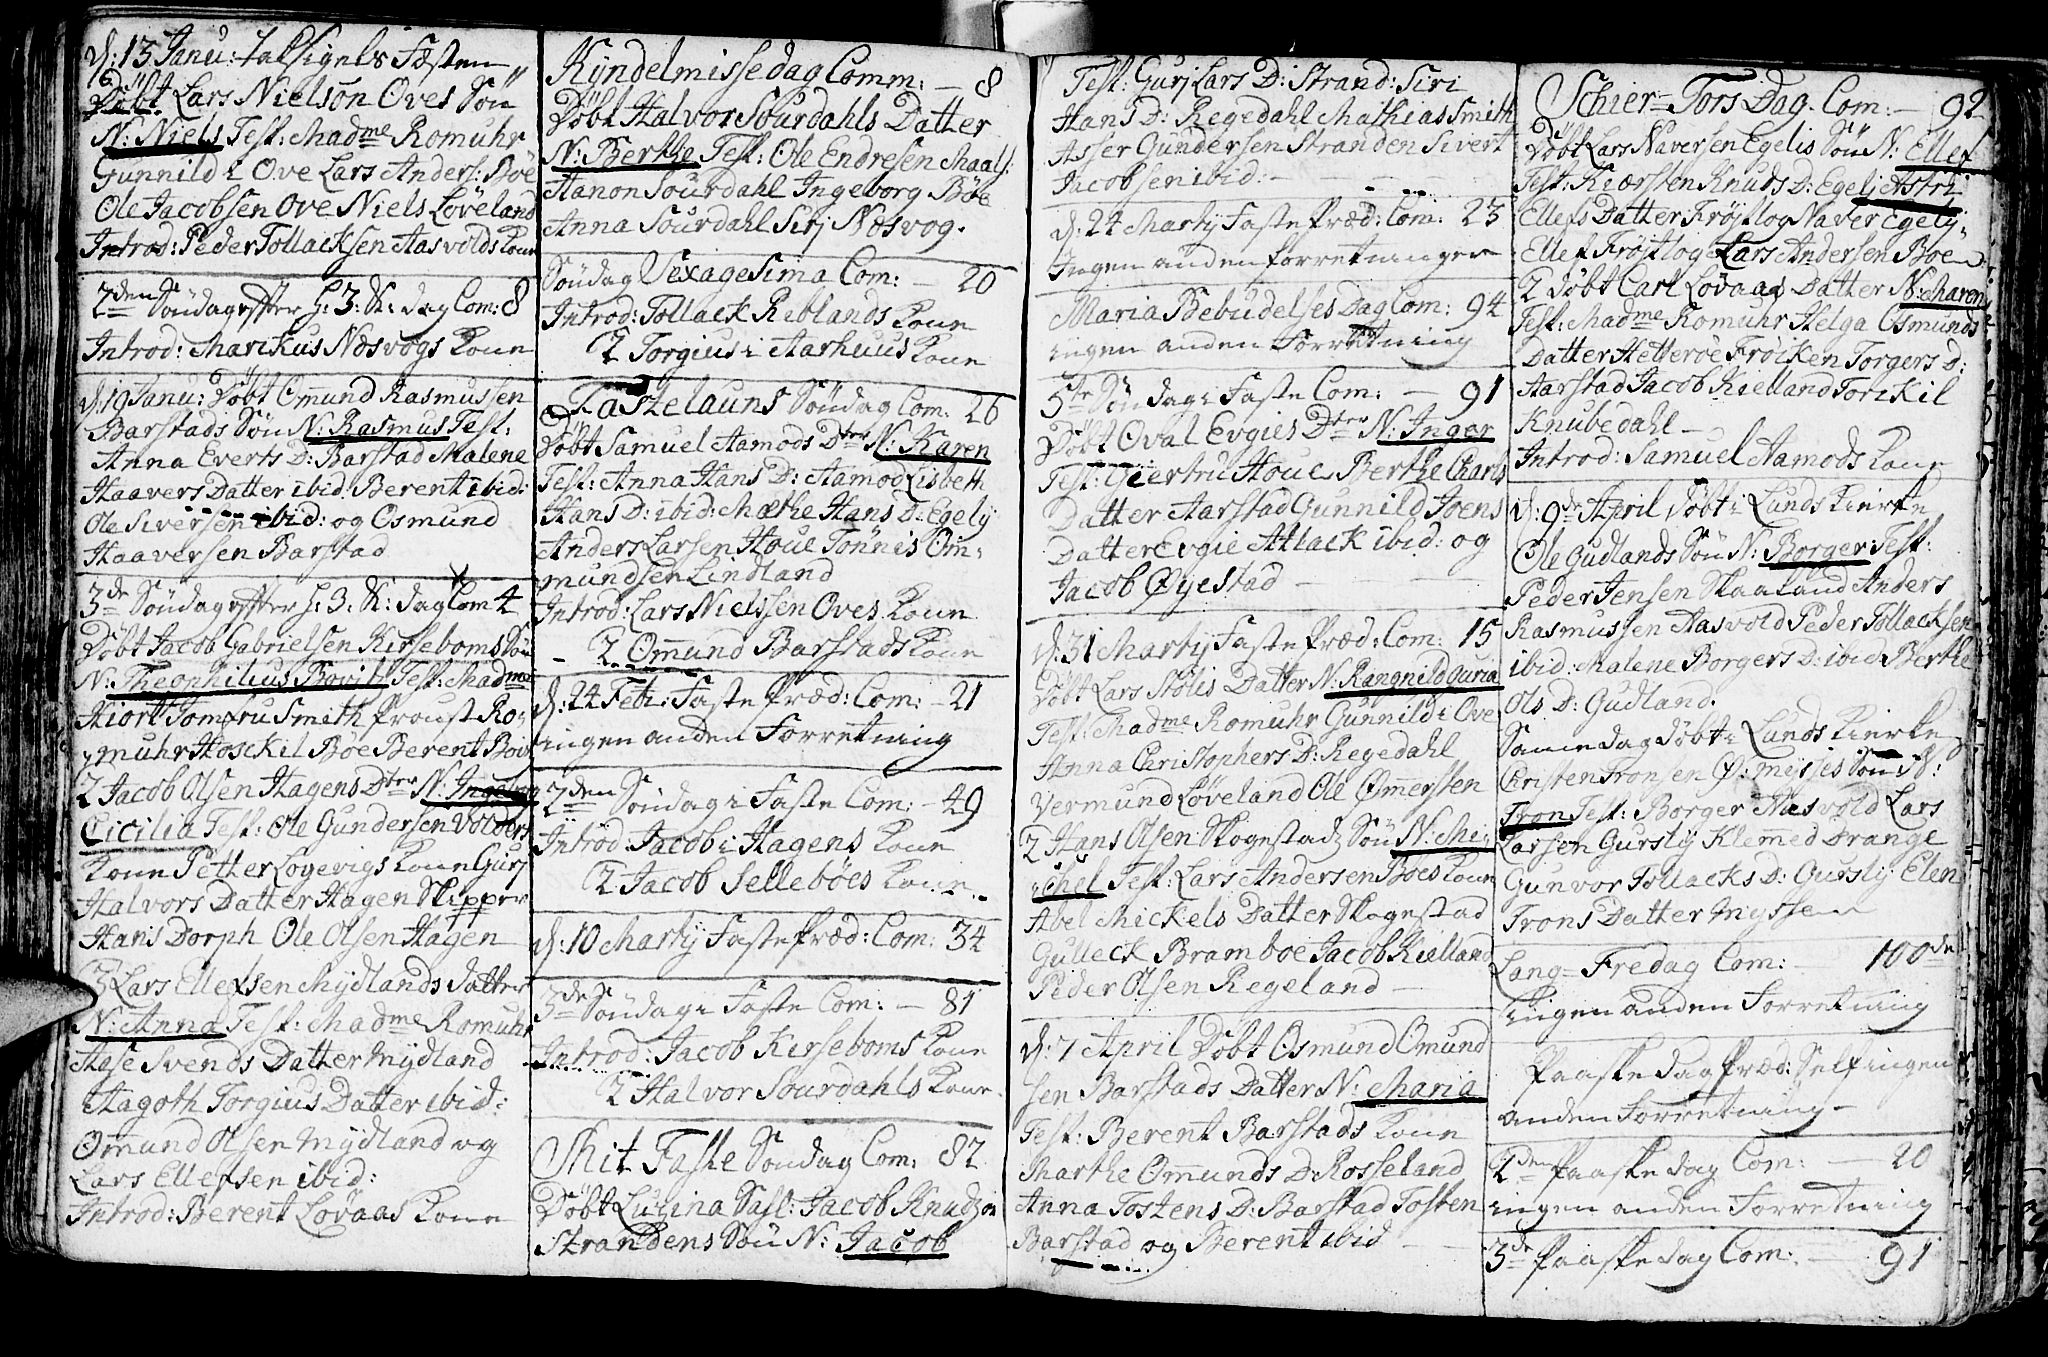 d: 13 Janu: Tacksigels Festen
Döbt Lars Nielson Oves Sön
N: Niels Test: Madme Romuhr
Gunnild i Ove Lars Anders: Böe
Ole Jacobsen Ove Niels Löveland
Introd: Peder Tollacksen Aasvolds Kone
2den Söndag effter H: 3: K: dag Com: 8
Introd: Marckus Næsvogs Kone
d: 19 Janu: Döbt Omund Rasmussen
Barstads Sön N: Rasmus Test:
Anna Everts D: Barstad Malene
Haavers Datter ibid: Berent ibid:
Ole Siversen ibid: og Osmund
Haaversen Barstad
3de Söndag effter H: 3: K: dag Com 4
Döbt Jacob Gabrielsen Kirseboms Sön
N: Theophilius Bovitz Test: Madme
Hiort Jomfru Smith Proust Ro-
muhr Hosckil Böe Berent Böe
2 Jacob Olsen Hagens Dter N: Ingeborg
Cicilia Test: Ole Gundersen Volders
Kone Petter Logevigs Kone Guri
Halvors Datter Hagen Skipper
Hans Dorph Ole Olsen Hagen
3 Lars Ellefsen Mydlands Datter
N: Anna Test: Madme Romuhr
Aase Svends Datter Mydland
Aagoth Torgius Datter ibid:
Omund Olsen Mydland og
Lars Ellefsen ibid:
Introd: Berent Lovaas Kone
Kyndelmissedag Comm: - 8
Döbt Halvor Sourdahls Datter
N: Berthe Test: Ole Endresen Maals:
Hanon Sourdahl Ingeborg Böe
Anna Sourdahl Siri Næsvog.
Söndag Sexagesima Com: - 20
Introd: Tollack Reblands Kone
2 Torgius i Aarhuus Kone
Fastelauns Söndag Com: 26
Döbt Samuel Aamods Dter N: Karen
Test: Anna Hans D: Aamod Lisbeth
Hans D: ibid: Mæthe Hans D: Egely
Anders Larsen Houe Tönnis Om-
mundsen Lindland
Introd: Lars Nielssen Oves Kone
2 Omund Barstads Kone
d: 24 Feb: Faste Præd: Com: - 21
ingen anden Forretning
2den Söndag i Faste Com: - 49
Introd: Jacob i Hagens Kone
2 Jacob Selleböes Kone
d: 10 Martij Faste Præd: Com: 34
3de Söndag i Faste Com: - 81
Introd: Jacob Kirseboms Kone
2 Halvor Sourdahls Kone
Mit Faste Söndag Com: 82
Döbt Jacob Knudsen
Strandens Sön N: Jacob
Test: Guri Lars D: Strand: Siri
Hans D: Regedahl Mathias Smith
Asser Gundersen Stranden Sivert
Jacobsen ibid: -
d: 24 Martij Faste Præd: Com: 23
Ingen anden forretninger
Maria Bebudelses Dag Com: 94
ingen anden Forretning
5te Söndag i Faste Com: - 91
Döbt Oval Evgies Dter N: Inger
Test: Giertru Houe Berthe Carls
Datter Aarstad Gunnild Joens
Datter Evgie Atlack ibid: og
Jacob Øyestad -
d: 31 Martij Faste Præd: Com: 15
Döbt Lars Stölis Datter N: Rangnild Guria
Test: Madme Romuhr Gunnild i Ove
Anna Christophers D: Regedahl
Vermund Löveland Ole Ommersten
2 Hans Olsen Skogestads Sön N: Mi-
chel Test: Lars Andersen Boes Kone
Abel Mickels Datter Skogestad
Gulleck Bramboe Jacob Kielland
Peder Olsen Regeland -
d: 7 April Döbt Osmund Omund
sen Barstads Datter N: Maria
Test: Berent Barstads Kone
Marthe Omunds D: Rosseland
Anna Tostens D: Barstad Tosten
Barstad og Berent ibid
Schier=Tors Dag. Com: - 92
Döbt Lars Naversen Egelis Sön N: Ellef
Test: Kiersten Knuds D: Egelj Astri
Ellefs Datter Fröjtlog Naver Egely
Ellef Fröitlog Lars Andersen Boen
2 Döbt Carl Lovaas Datter N: Maren
Test: Madme Romuhr Helga Osmunds
Datter Hetteröe Fröiken Torgers D:
Aarstad Jacob Kielland Torckil
Knubedahl -
Introd: Samuel Aamods Kone
d: 9de April Döbt i Lunds Kierke
Ole Gudlands Sön N: Borger Test:
Peder Jensen Skaaland Anders
Rasmussen Aasvold Peder Tollacksen
ibid: Malene Borgers D: ibid Berthe
Ols D: Gudland.
Same dag döbt i Lunds Kierke
Christen Tronsen Ø: Myssis Sön N:
Tron Test: Borger Aasvold Lars
Larsen Gursly Klemed Drange
Gunvor Tollacks D: Gursly Elen
Trons Datter Myssen
Lang=Fredag Com: - 100de
ingen anden Forretning
Paaske dag Præd: Self ingen
anden Forretning -
2den Paaske dag Com: - 20
ingen anden Forretning
3de Paaske dag Com: - 91